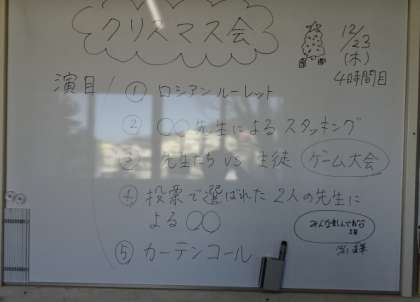 クリスマス会
12/23
(木)
4時間目
演目
① ロシアンルーレット
② ○○先生によるスタッキング
③ 先生たち VS 生徒 ゲーム大会
④ 投票で選ばれた2人の先生に
よる ○○
⑤ カーテンコール
みんな楽しんでね